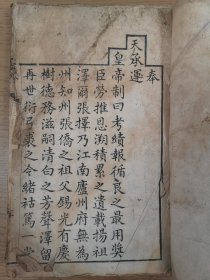 奉
天承運
皇帝制曰考績報循良之最用奬
臣勞推恩溯積累之遺載揚祖
澤爾張擇乃江南廬州府無為
州知州張僑之祖父錫光有慶
樹德務滋嗣清白之芳聲澤留
再世衍弓裘之令緒祜篤一堂